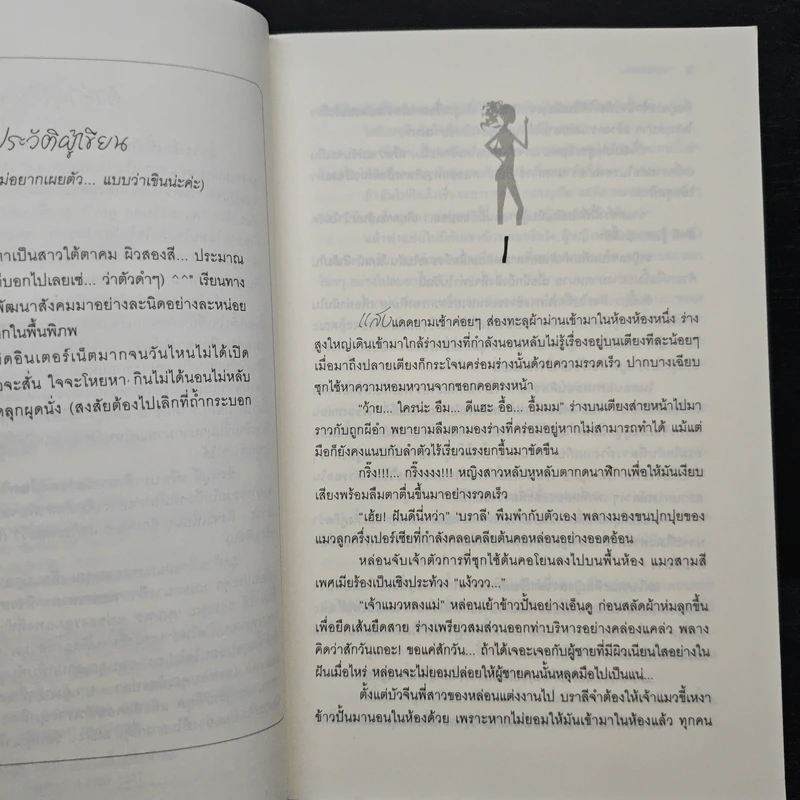 ประวัติผู้เขียน
ม่อยากเผยตัว... แบบว่าเขินน่ะค่ะ)
ตาเป็นสาวใต้ตาคม ผิวสองสี... ประมาณ
บอกไปเลยเซ่... ว่าตัวดำๆ) ^^" เรียนทาง
พัฒนาสังคมมาอย่างละนิดอย่างละหน่อย
กในพื้นพิภพ
ติดอินเตอร์เน็ตมากจนวันไหนไม่ได้เปิด
จะสั่น ใจจะโหยหา กินไม่ได้นอนไม่หลับ
ดลุกผุดนั่ง (สงสัยต้องไปเลิกที่ถ้ำกระบอก
1
แสงแดดยามเช้าค่อยๆ ส่องทะลุผ้าม่านเข้ามาในห้องห้องหนึ่ง ร่าง
สูงใหญ่เดินเข้ามาใกล้ร่างบางที่กำลังนอนหลับไม่รู้เรื่องอยู่บนเตียงทีละน้อยๆ
เมื่อมาถึงปลายเตียงก็กระโจนคร่อมร่างนั้นด้วยความรวดเร็ว ปากบางเฉียบ
ซุกไซ้หาความหอมหวานจากซอกคอตรงหน้า
“ว้าย... ใครน่ะ อืม... ดีแฮะ อื้อ... อื้มมม” ร่างบนเตียงส่ายหน้าไปมา
ราวกับถูกผีอำ พยายามลืมตามองร่างที่คร่อมอยู่หากไม่สามารถทำได้ แม้แต่
มือก็ยังคงแนบกับลำตัวไร้เรี่ยวแรงยกขึ้นมาขัดขืน
กริ๊ง!!!... กริ๊งงงง!!! หญิงสาวหลับหูหลับตากดนาฬิกาเพื่อให้มันเงียบ
เสียงพร้อมลืมตาตื่นขึ้นมาอย่างรวดเร็ว
“เฮ้ย! ฝันดีนี่หว่า” ‘บราลี’ พึมพำกับตัวเอง พลางมองขนปุกปุยของ
แมวลูกครึ่งเปอร์เซียที่กำลังคลอเคลียต้นคอหล่อนอย่างออดอ้อน
หล่อนจับเจ้าตัวการที่ซุกไซ้ต้นคอโยนลงไปบนพื้นห้อง แมวสามสี
เพศเมียร้องเป็นเชิงประท้วง “แง้ววว...”
“เจ้าแมวหลงแม่” หล่อนเย้าข้าวปั้นอย่างเอ็นดู ก่อนสลัดผ้าห่มลุกขึ้น
เพื่อยืดเส้นยืดสาย ร่างเพรียวสมส่วนออกท่าบริหารอย่างคล่องแคล่ว พลาง
คิดว่าสักวันเถอะ! ขอแค่สักวัน... ถ้าได้เจอะเจอกับผู้ชายที่มีผิวเนียนใสอย่างใน
ฝันเมื่อไหร่ หล่อนจะไม่ยอมปล่อยให้ผู้ชายคนนั้นหลุดมือไปเป็นแน่...
ตั้งแต่บัวจีนพี่สาวของหล่อนแต่งงานไป บราลีจำต้องให้เจ้าแมวขี้เหงา
ข้าวปั้นมานอนในห้องด้วย เพราะหากไม่ยอมให้มันเข้ามาในห้องแล้ว ทุกคน